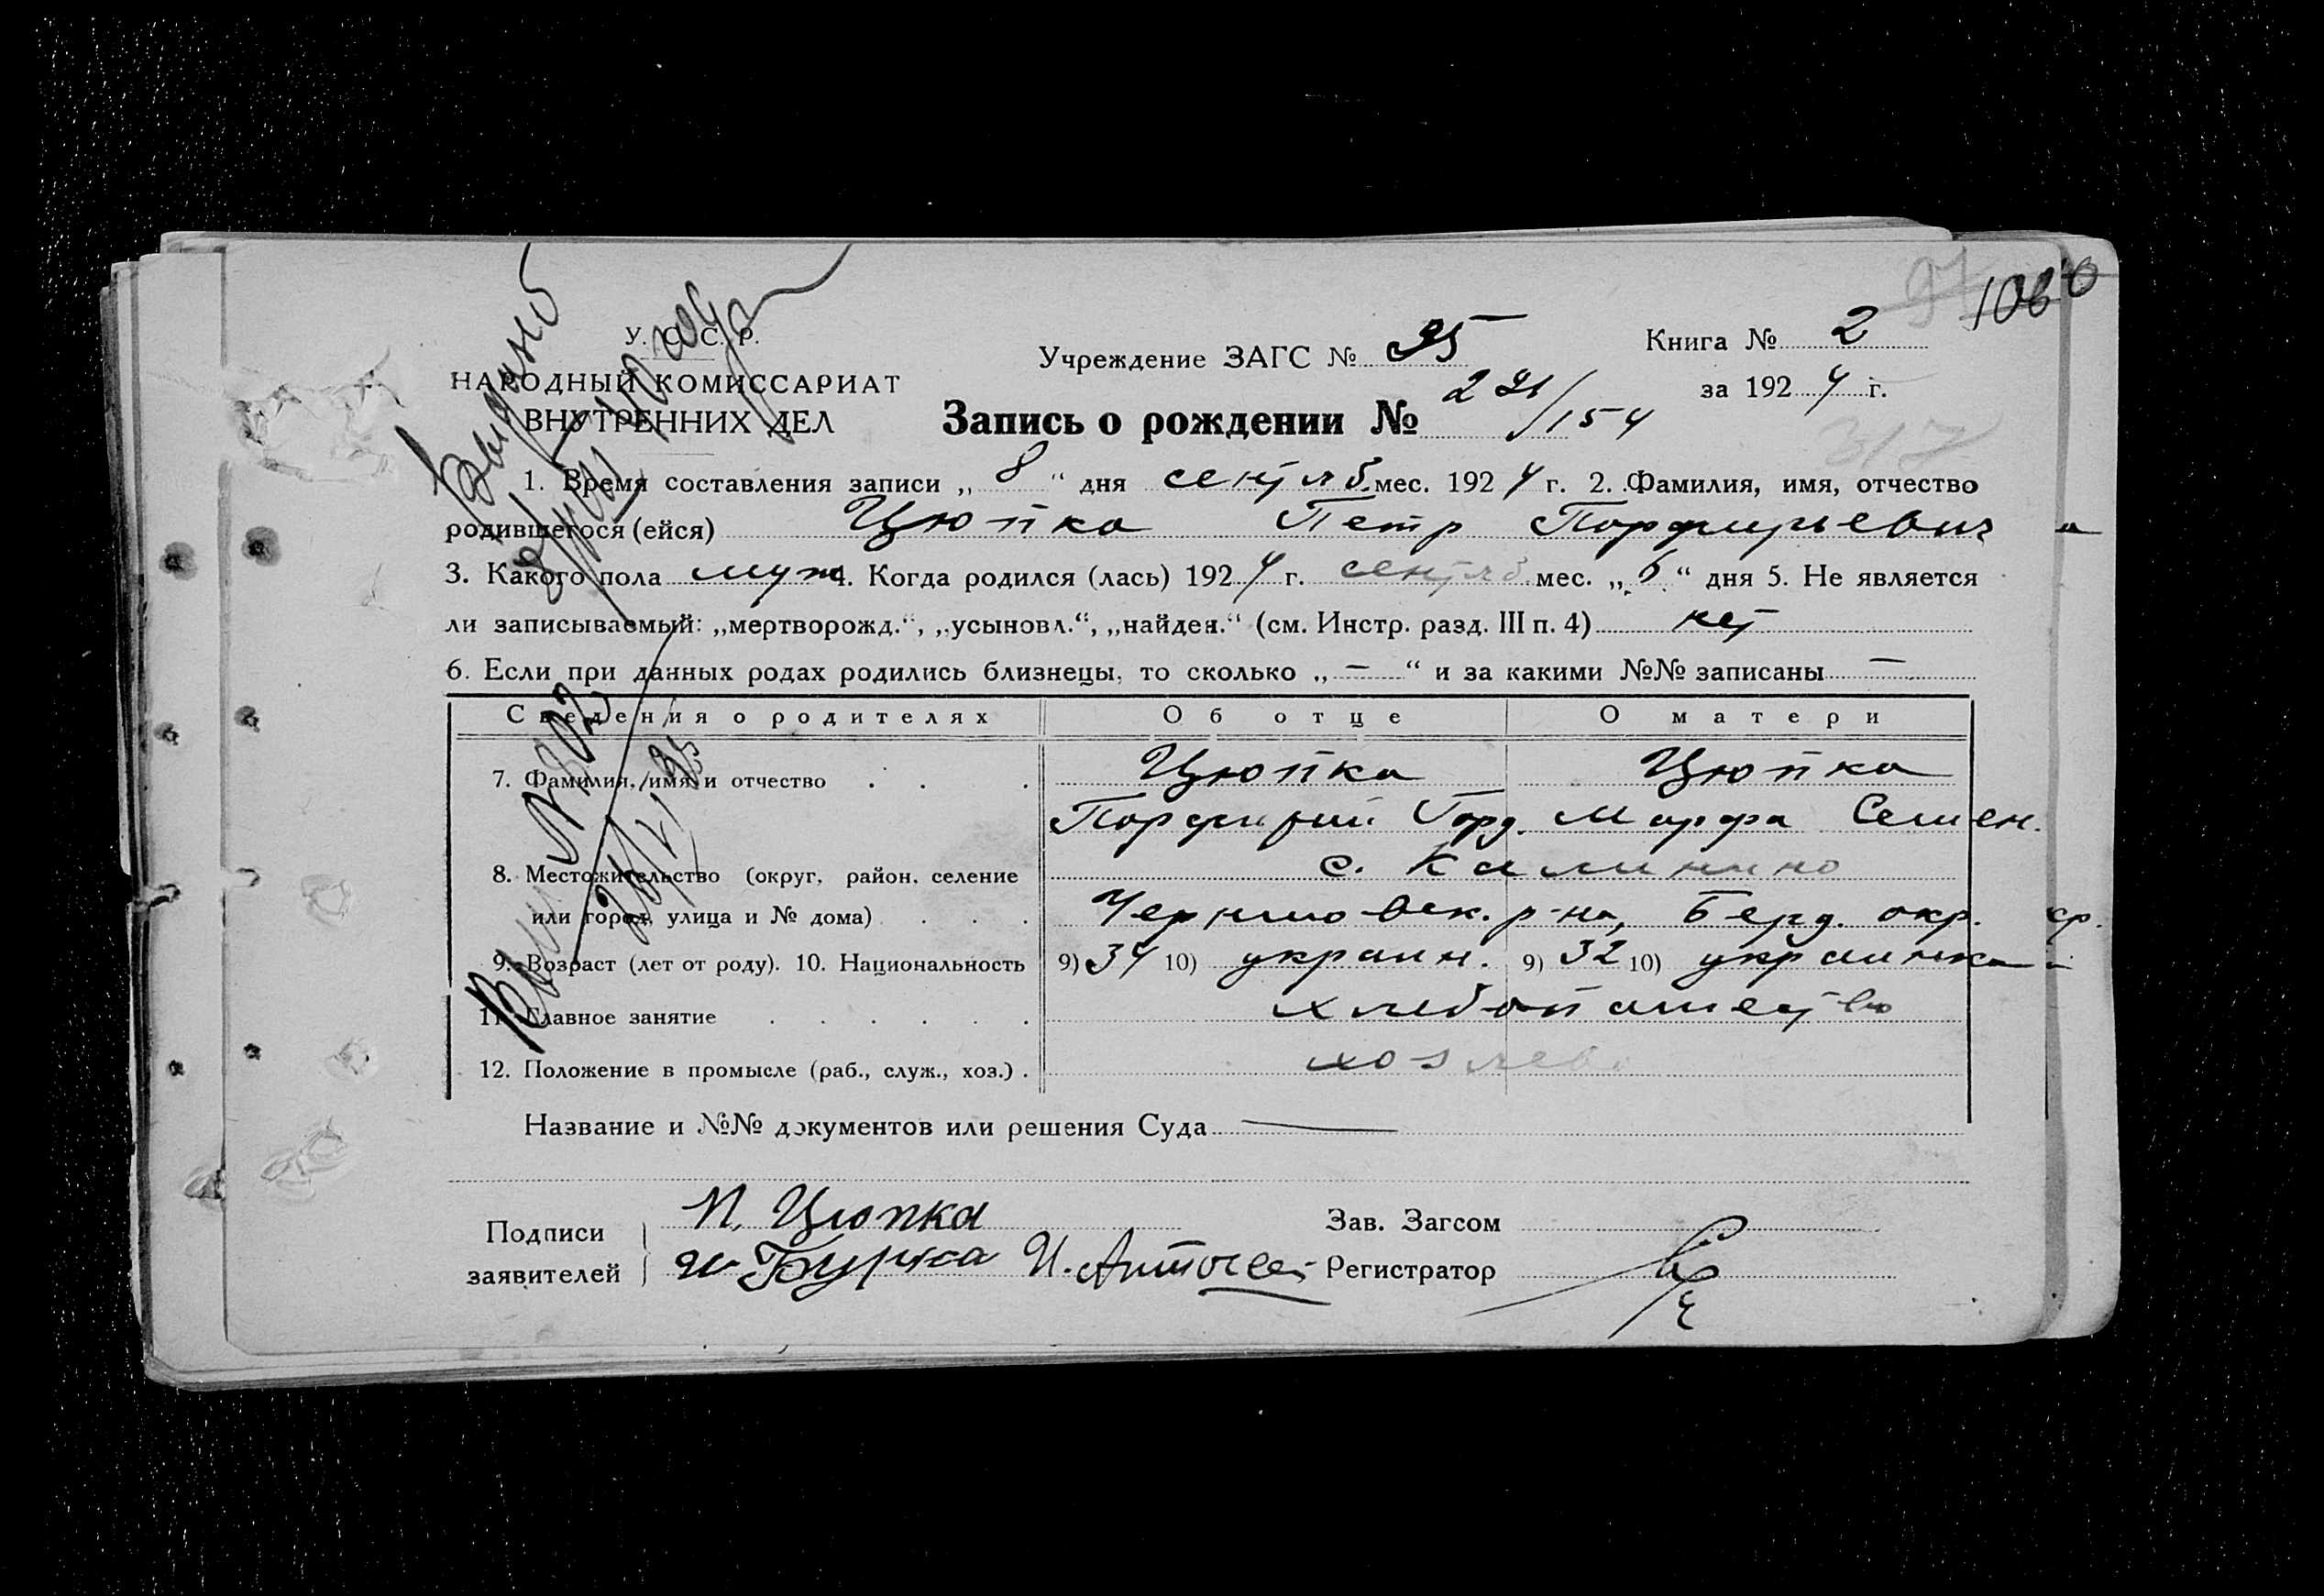 100
У. С. С. Р.
НАРОДНЫЙ КОМИССАРИАТ
ВНУТРЕННИХ ДЕЛ
Учреждение ЗАГС № 95
Книга № 2
за 1924 г.
Запись о рождении № 221/154
317
1. Время составления записи „ 8 “ дня сентяб. мес. 1924 г. 2. Фамилия, имя, отчество
родившегося (ейся) Цюпка Петр Порфирьевич
3. Какого пола муж 4. Когда родился (лась) 1924 г. сентяб мес. „ 6 “ дня 5. Не является
ли записываемый: „мертворожд.“, „усыновл.“, „найден.“ (см. Инстр. разд. III п. 4) нет
6. Если при данных родах родились близнецы, то сколько „ — “ и за какими №№ записаны —
Сведения о родителях Об отце О матери
7. Фамилия, имя и отчество . . . Цюпка Цюпка
Порфирий Горд. Марфа Семен.
8. Местожительство (округ, район, селение с. Калинино
или город, улица и № дома) . . . Черниговск. р-на, Берд. окр.
9. Возраст (лет от роду). 10. Национальность 9) 34 10) украин. 9) 32 10) украинка
11. Главное занятие . . . . . . хлебопашество
12. Положение в промысле (раб., служ., хоз.) .
Название и №№ документов или решения Суда —
Подписи заявителей
П. Цюпка
Бурка И.
Зав. Загсом
Регистратор